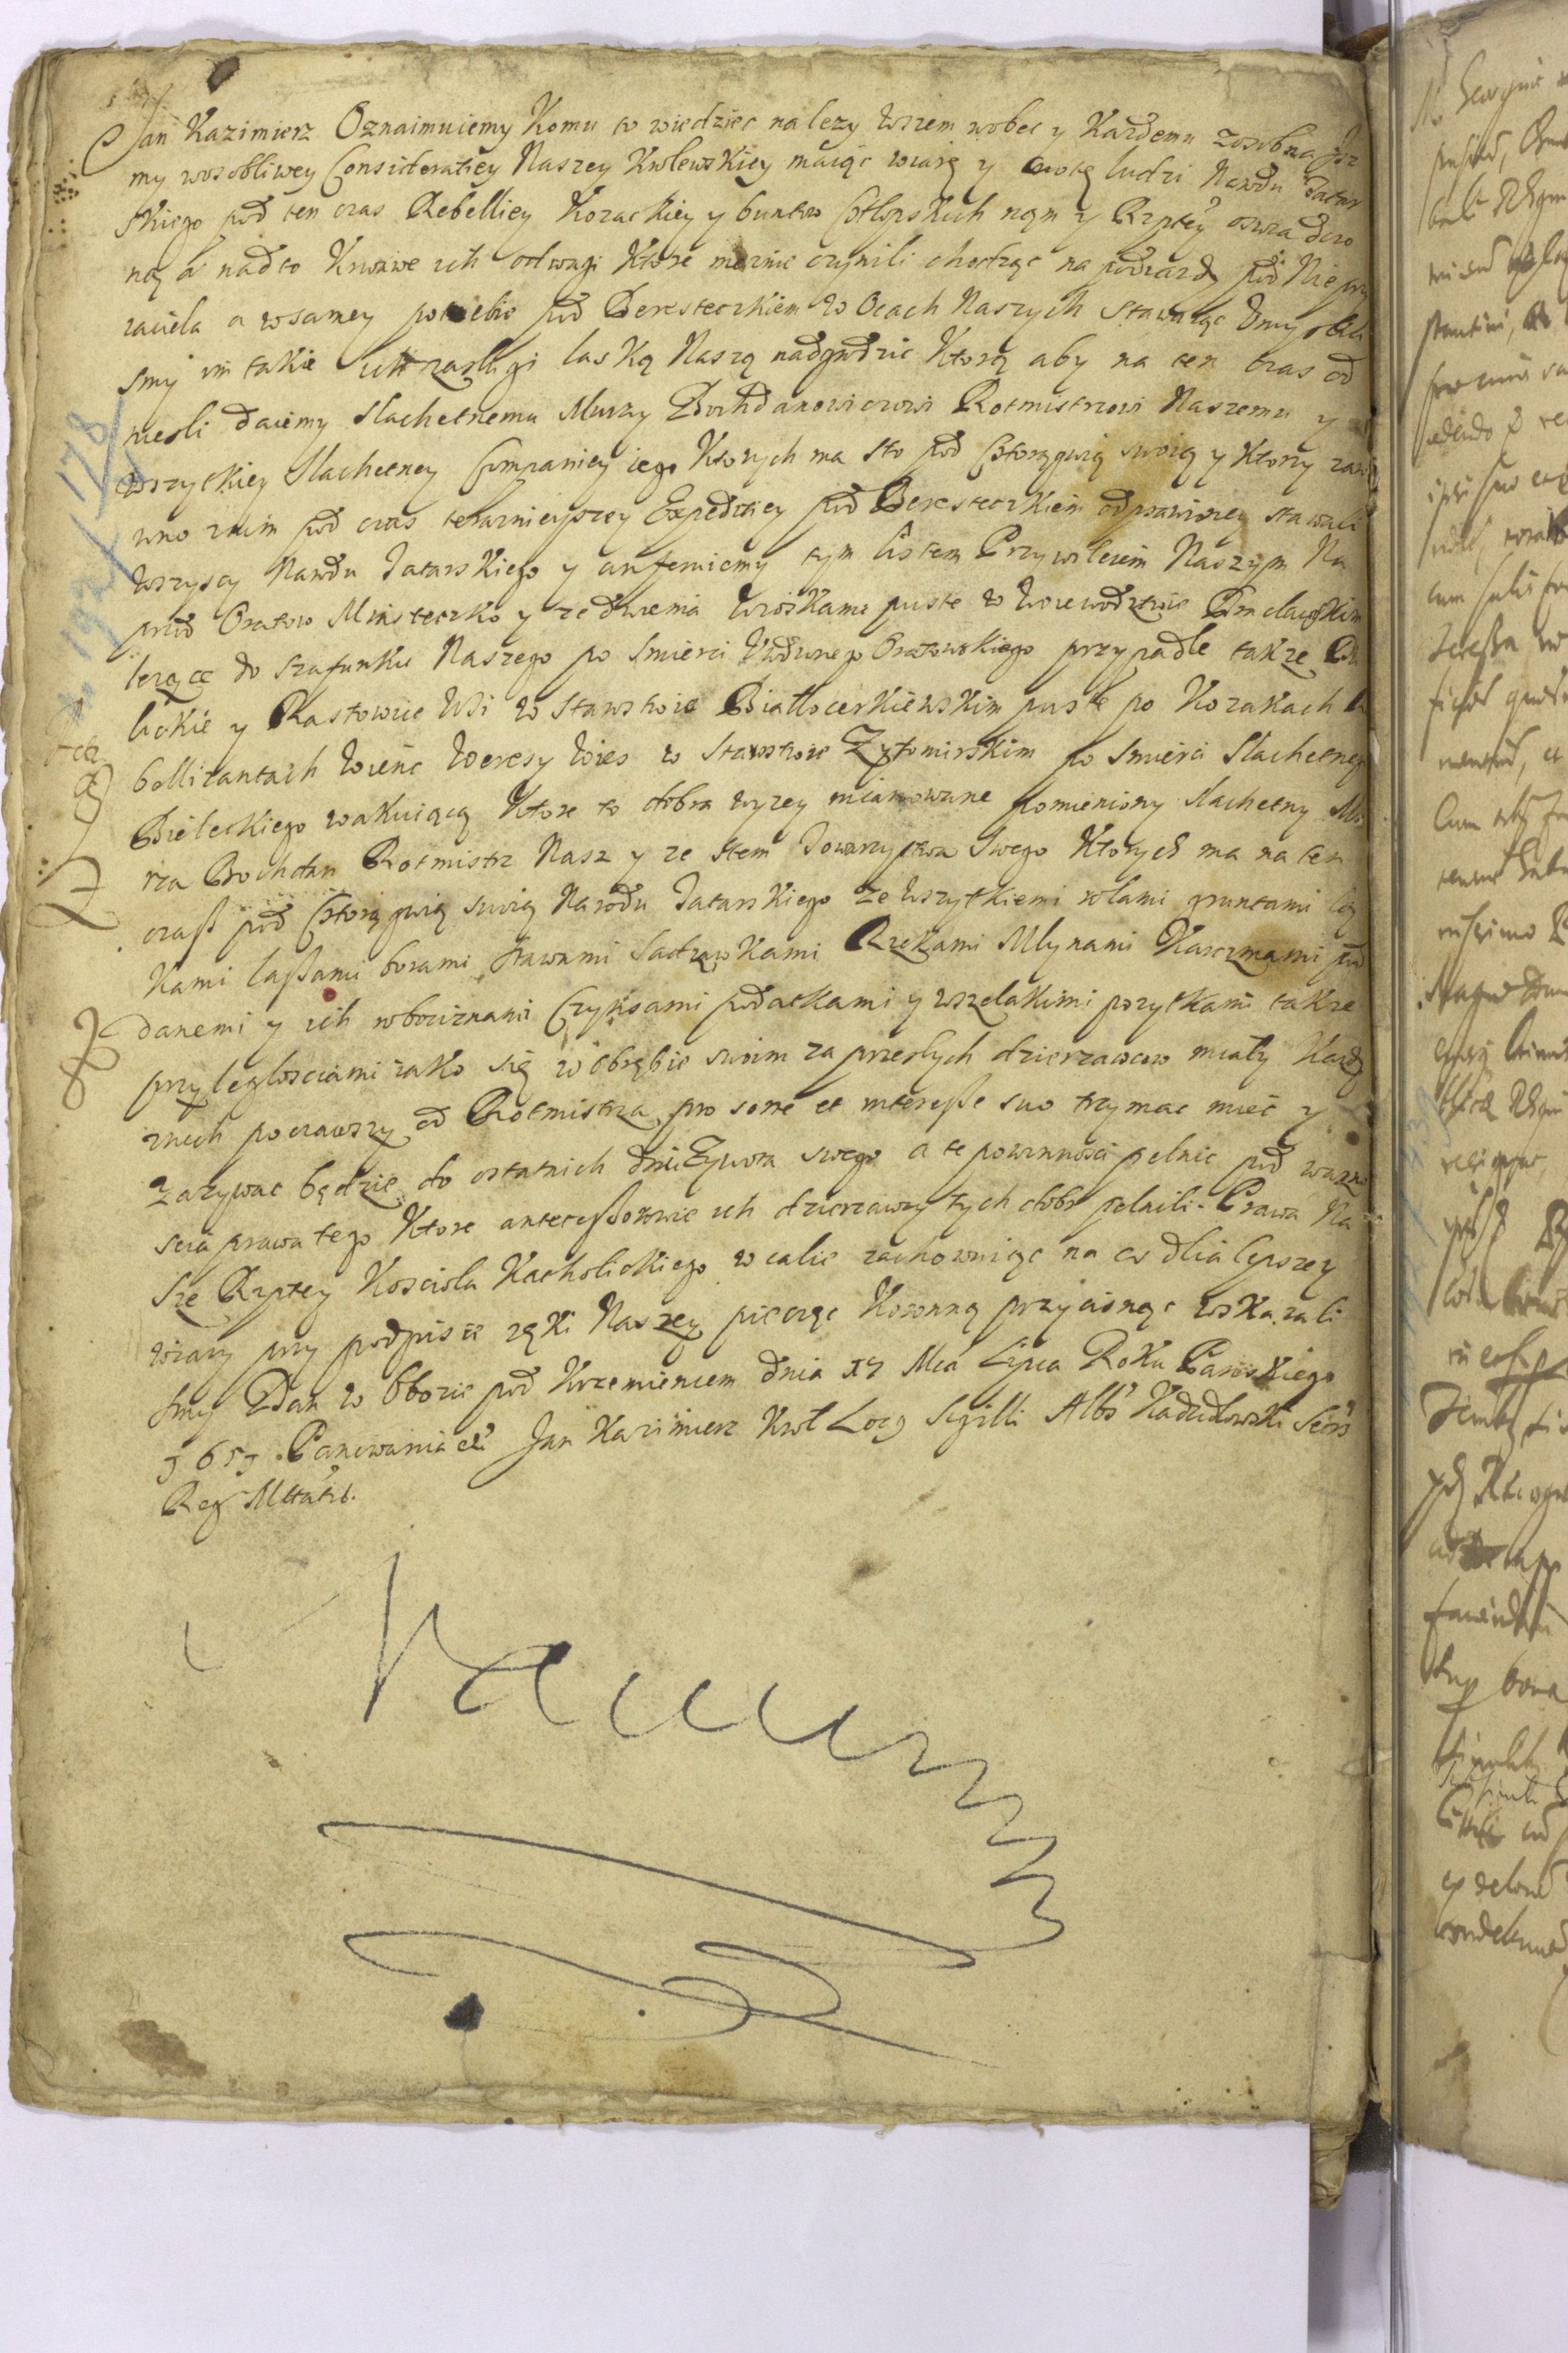 Jan Kazimierz Oznaimuiemy Komu to wiedziec nalezy wszem wobec y Kazdemu zosobna Isz
my wosobliwey Consideratiey Naszey Krolewskiey maiąc wiarę y cnotę ludzi Narodu Tatar
skiego pod ten czas Rebelliey Kozackiey y buntow Chłopskich nąm y Rzptey oswiadczo
ną a nadto Krwawe ich odwagi Ktore męznie czynili chodząc na podiazdy pod Niepry
iaciela a wsamey potrzebie pod Beresteczkiem w Oczach Naszych Stawaiąc Umyslili
smy im takie ich zasługi laską Naszą nadgrodzic Ktorą aby na ten czas od
niesli daiemy Slachetnemu Murzy Bohdanowiczowi Rotmistrzowi Naszemu y
wszytkiey Slachetney Companiey iego Ktorych ma sto pod Chorągwią swoią y Ktory zaro
wno znim pod czas teraznieyszey Expeditiey pod Beresteczkiem odprawioney stawali
wszyscy Narodu Tatarskiego y conferuiemy tym listem Przywileiem Naszym Na
przod Oratow Miasteczko y ze dwiema wioskami puste w Woiewodztwie Braclawskim
lezące do szafunku Naszego po Smierci Oratowskiego przypadłe takze
lickie y Rastowice Wsi w Starostwie Białłocerkiewskim puste po Kozakach Re
bellizantach Wieś w Starostwie Zytomirskim po Smierci Slachetnego
Bieleckiego wakuiącą Ktore to dobra wyzey mianowane pomieniony Slachetny Mu
rza Bohdan Rotmistrz Nasz y ze stem Towarzystwa Swego Ktorych ma na ten
czas pod Chorągwią swoią Narodu Tatarskiego ze wszytkiemi rolami gruntami łą
kami lassami borami stawami Sadzawkami Rzekami Mlynami Karczmami pod
danemi y ich robociznami Czynszami podatkami y wszelakimi pozytkami takze
przyległosciami iako się w obrębie swoim za przeszłych dzierzawcow miały Kazdy
znich począwszy od Rotmistrza pro sorte et interesse suo trzymac miec y
zazywac będzie do ostatnich dni Zywota swego a te powinnosci pełnic pod wazno
scią prawa tego Ktore antecessorowie ich dzierzawcy tych dobr pełnili. Prawa Na
sze Rzptey Kosciola Katholickiego wcalie zachowuiąc na co dlia lepszey
wiary przy podpisie ręki Naszey pieczęc Koronną przycisnąc roskazali
smy Dan w Obozie pod Krzemiencem dnia 17 Mca Lipca Roku Panskiego
1651. Panowania etc Jan Kazimierz Krol Locus Sigilli Secrs
Reg Mttatis.
178
192